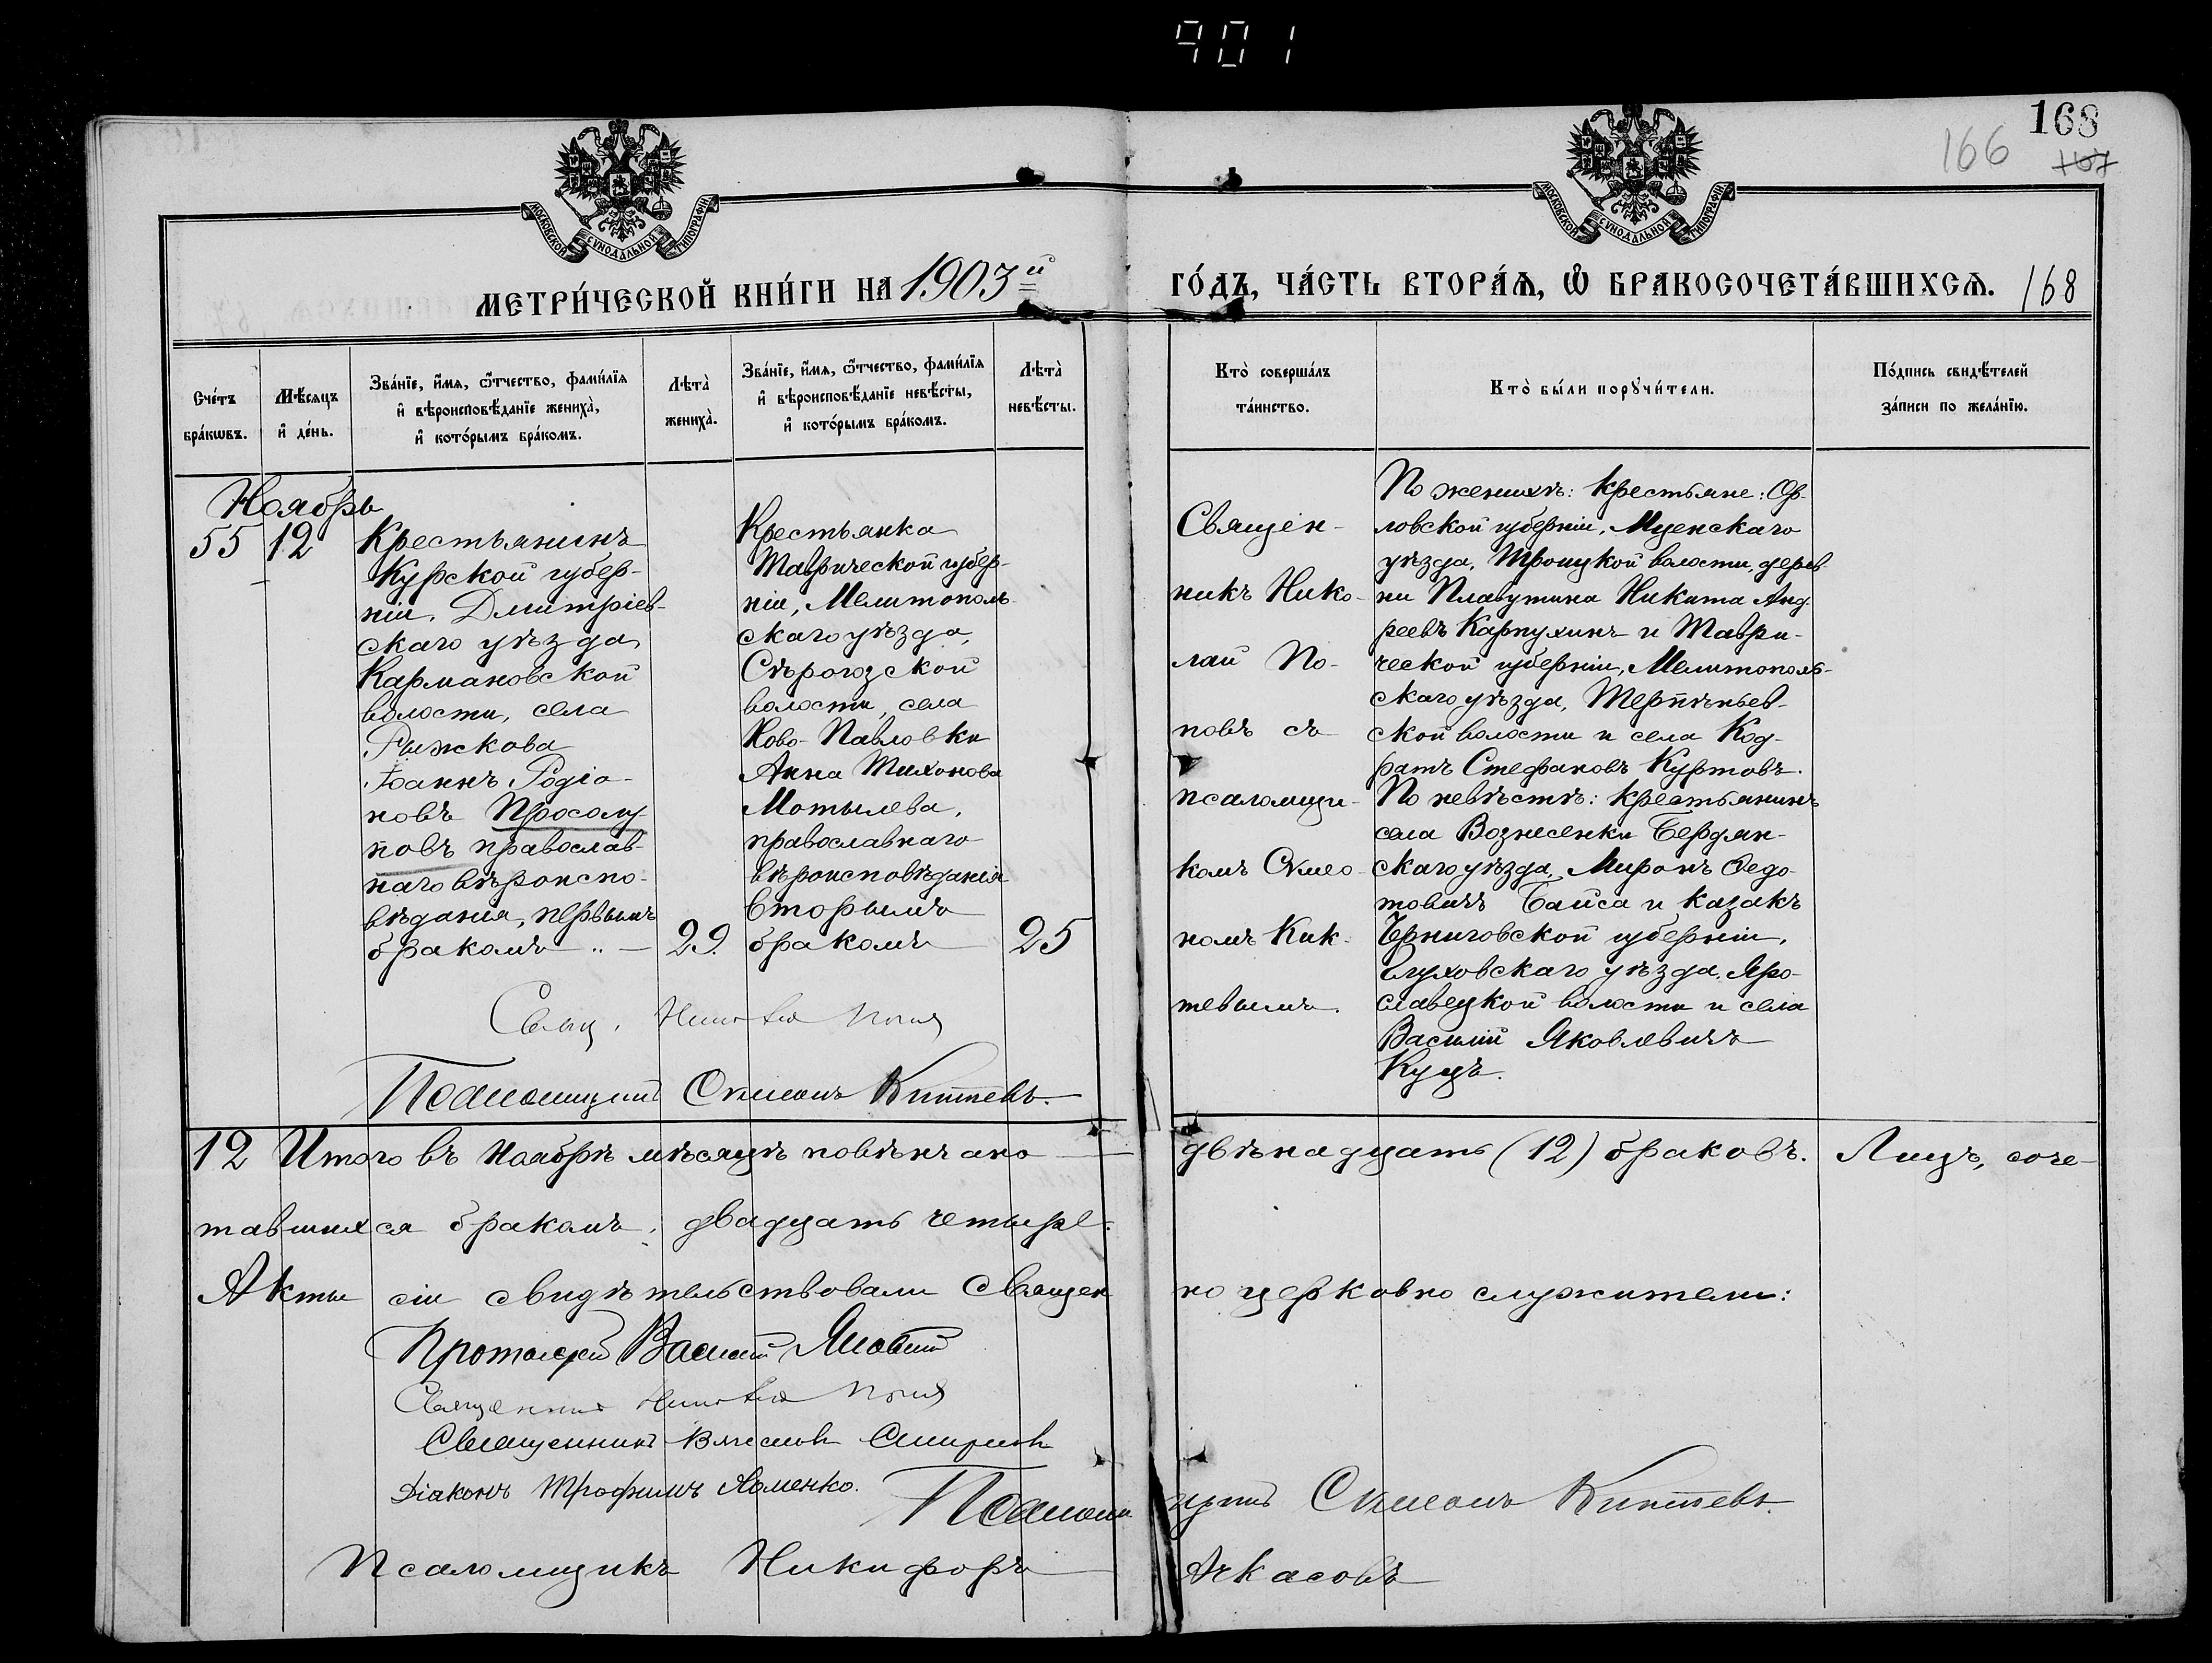 901
168
166
167
МОСКОВСКОЙ СѴНОДАЛЬНОЙ ТИПОГРАФІИ
МОСКОВСКОЙ СѴНОДАЛЬНОЙ ТИПОГРАФІИ
МЕТРИ́ЧЕСКОЙ КНИ́ГИ НА 1903й
ГО́ДЪ, ЧА́СТЬ ВТОРА́Ѧ, Ѽ БРАКОСОЧЕТА́ВШИХСѦ. 168
Сче́тъ
бра́кѡвъ.
Мѣ́сяцъ
и҆ де́нь.
Зва́нїе, и҆́мѧ, ѻ҆́тчество, фами́лїѧ
и҆ вѣроисповѣ́данїе жениха̀,
и҆ кото́рымъ бра́комъ.
Лѣта̀
жениха̀.
Зва́нїе, и҆́мѧ, ѻ҆́тчество, фами́лїѧ
и҆ вѣроисповѣ́данїе невѣ́сты,
и҆ кото́рымъ бра́комъ.
Лѣта̀
невѣ́сты.
Кто̀ соверша́лъ
та́инство.
Кто̀ бы́ли порꙋчи́тели.
По́дпись свидѣ́телей
за́писи по жела́нїю.
Ноябрь
55 12
Крестьянинъ
Курской губер-
ніи, Дмитріев-
скаго уѣзда,
Кармановской
волости, села
Рыжкова
Іоаннъ Родіо-
новъ Просолу-
повъ православ-
наго вѣроиспо-
вѣданія, первымъ
бракомъ
29.
Крестьянка
Таврической губер-
ніи, Мелитополь-
скаго уѣзда,
Сѣрогозской
волости, села
Ново-Павловки
Анна Тихонова
Мотылева,
православнаго
вѣроисповѣданія
вторымъ
бракомъ
25
Священ-
никъ Нико-
лай По-
повъ съ
псаломщи-
комъ Сѵмео-
номъ Кик-
тевымъ.
По женихѣ: крестьяне: Ор-
ловской губерніи, Мценскаго
уѣзда, Троицкой волости, дерев-
ни Плавутина Никита Анд-
реевъ Карпухинъ и Таври-
ческой губерніи, Мелитополь-
скаго уѣзда, Терпѣньев-
ской волости и села Код-
ратъ Стефановъ Куртовъ.
По невѣстѣ: крестьянинъ
села Вознесенки Бердян-
скаго уѣзда, Миронъ Ѳедо-
товичъ Байса и казакъ
Черниговской губерніи,
Глуховскаго уѣзда, Яро-
славецкой волости и села
Василій Яковлевичъ
Куцъ.
Свящ. Николай Попов
Псаломщикъ Сѵмеонъ Киктевъ.
12 Итого въ Ноябрѣ мѣсяцѣ повѣнчано двѣнадцать (12) браковъ. Лицъ, соче-
тавшихся бракомъ, двадцать четыре.
Акты сіи свидѣтельствовали священно церковно служители:
Протоіерей Василій
Священникъ Николай Попов
Священникъ Вячеславъ Смирновъ
Діаконъ Трофимъ Хоменко.
Псаломщикъ Сѵмеонъ Киктевъ.
Псаломщикъ Никифоръ Ачкасовъ